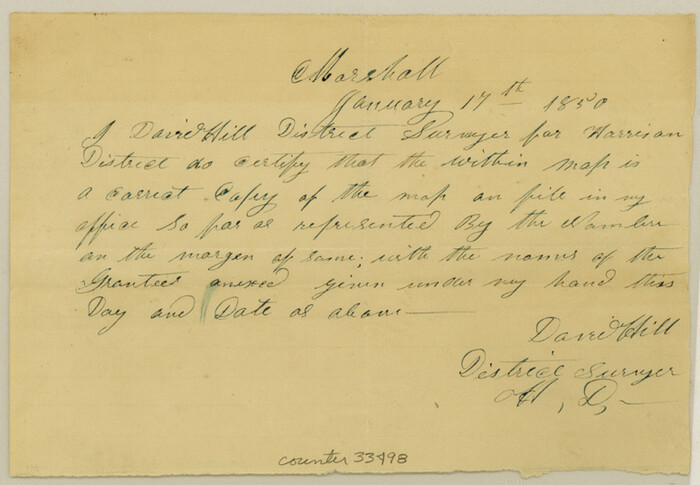 Marshall
January 17th 1850
I David Hill District Surveyer for Harrison
District do certify that the within map is
a correct Copy of the map on file in my
office so far as represented By the Number
on the margen of same; with the names of the
Grantees anexed given under my hand this
Day and Date as above —
David Hill
District Surveyer
H, D, —
counter 33498